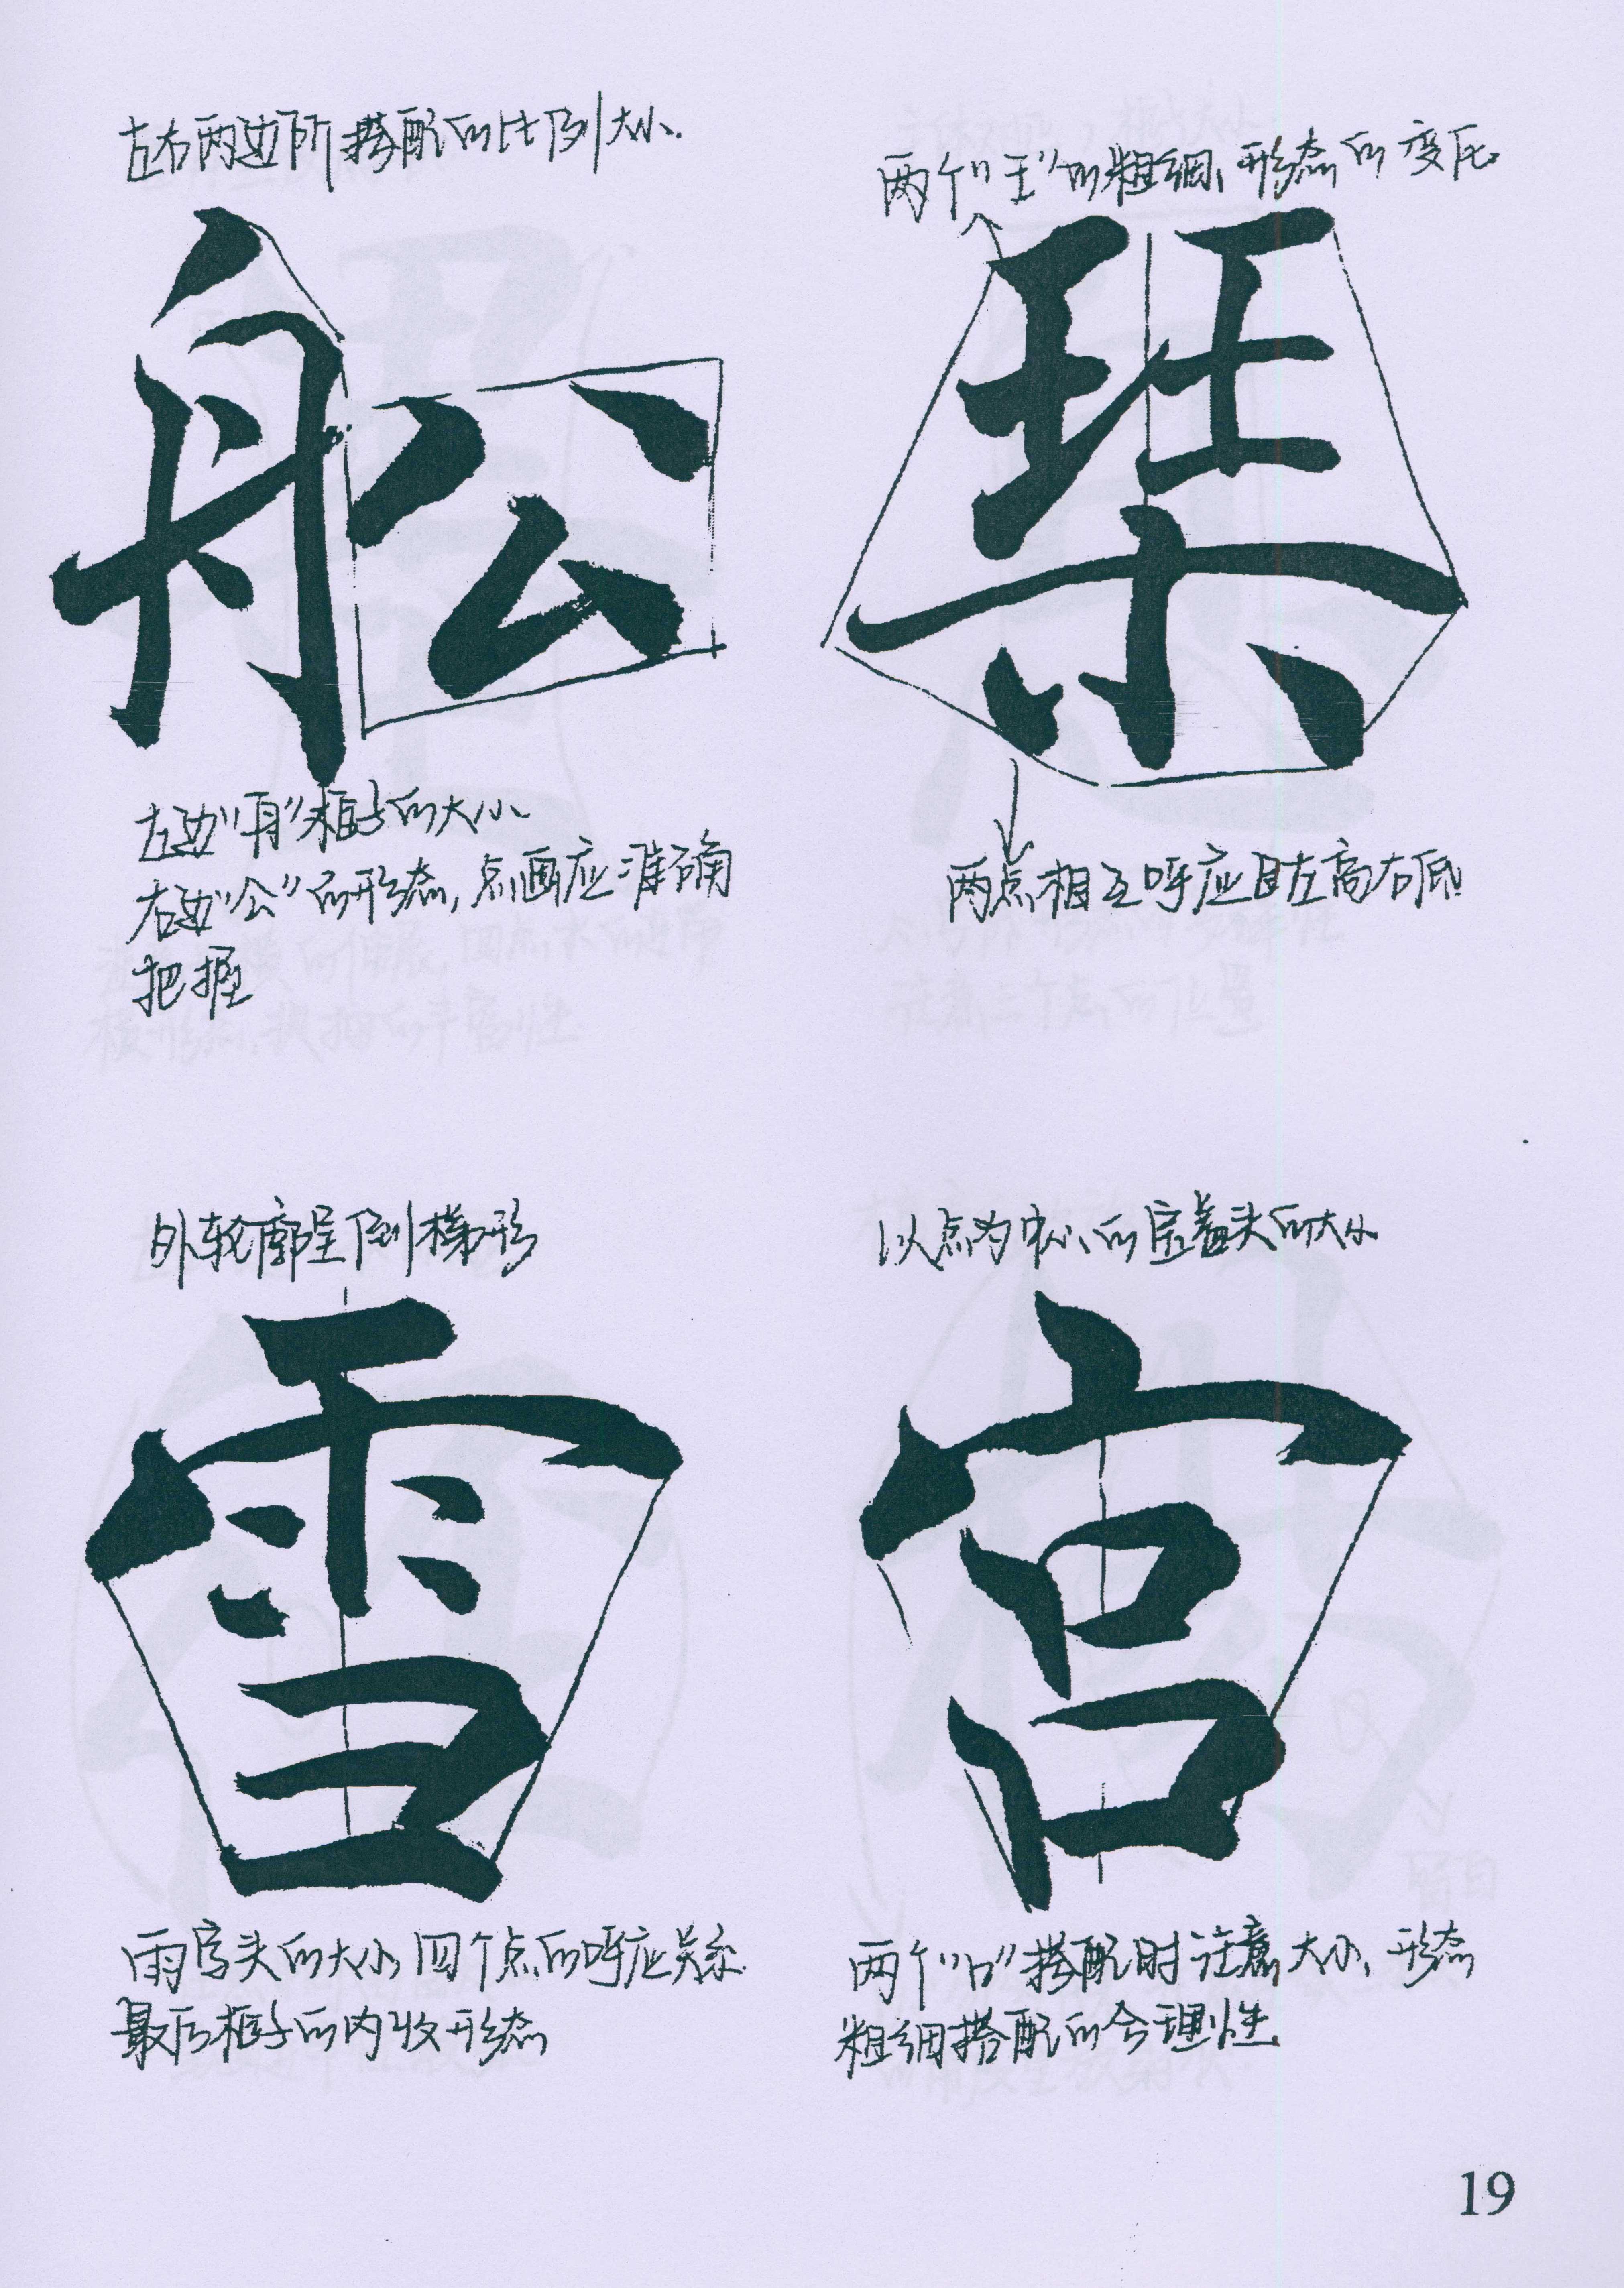 左右两边所搭配的比例大小.
舩
左边“舟”框子的大小
右边“公”的形态,点画应准确
把握
两个“王”的粗细、形态的变化
栞
两点相互呼应且左高右低
外轮廓呈倒梯形
雪
雨字头的大小 四个点的呼应关系.
最后框子的内收形态
以点为中心的宝盖头的大小
宫
两个“口”搭配时注意大小、形态
粗细搭配的合理性
19